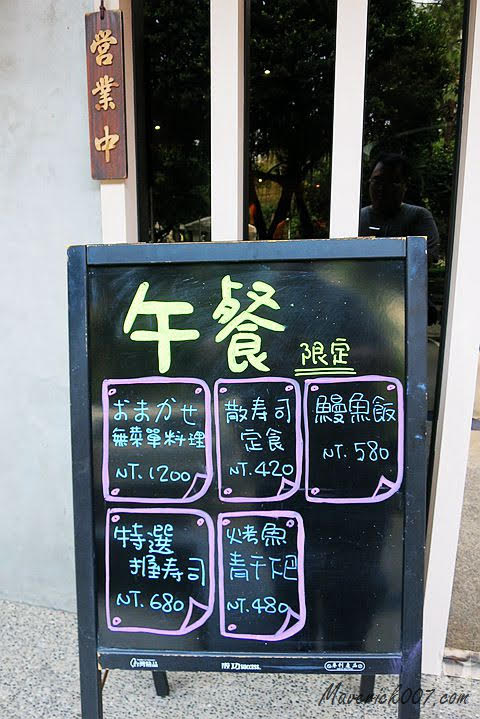 営業中
午餐 限定
おまかせ
無菜單料理
NT. 1200
散寿司
定食
NT. 420
鰻魚飯
NT. 580
特選
握寿司
NT. 680
烤魚
青干下巴
NT. 480
成功 success.
專利產品
Maverick007.com